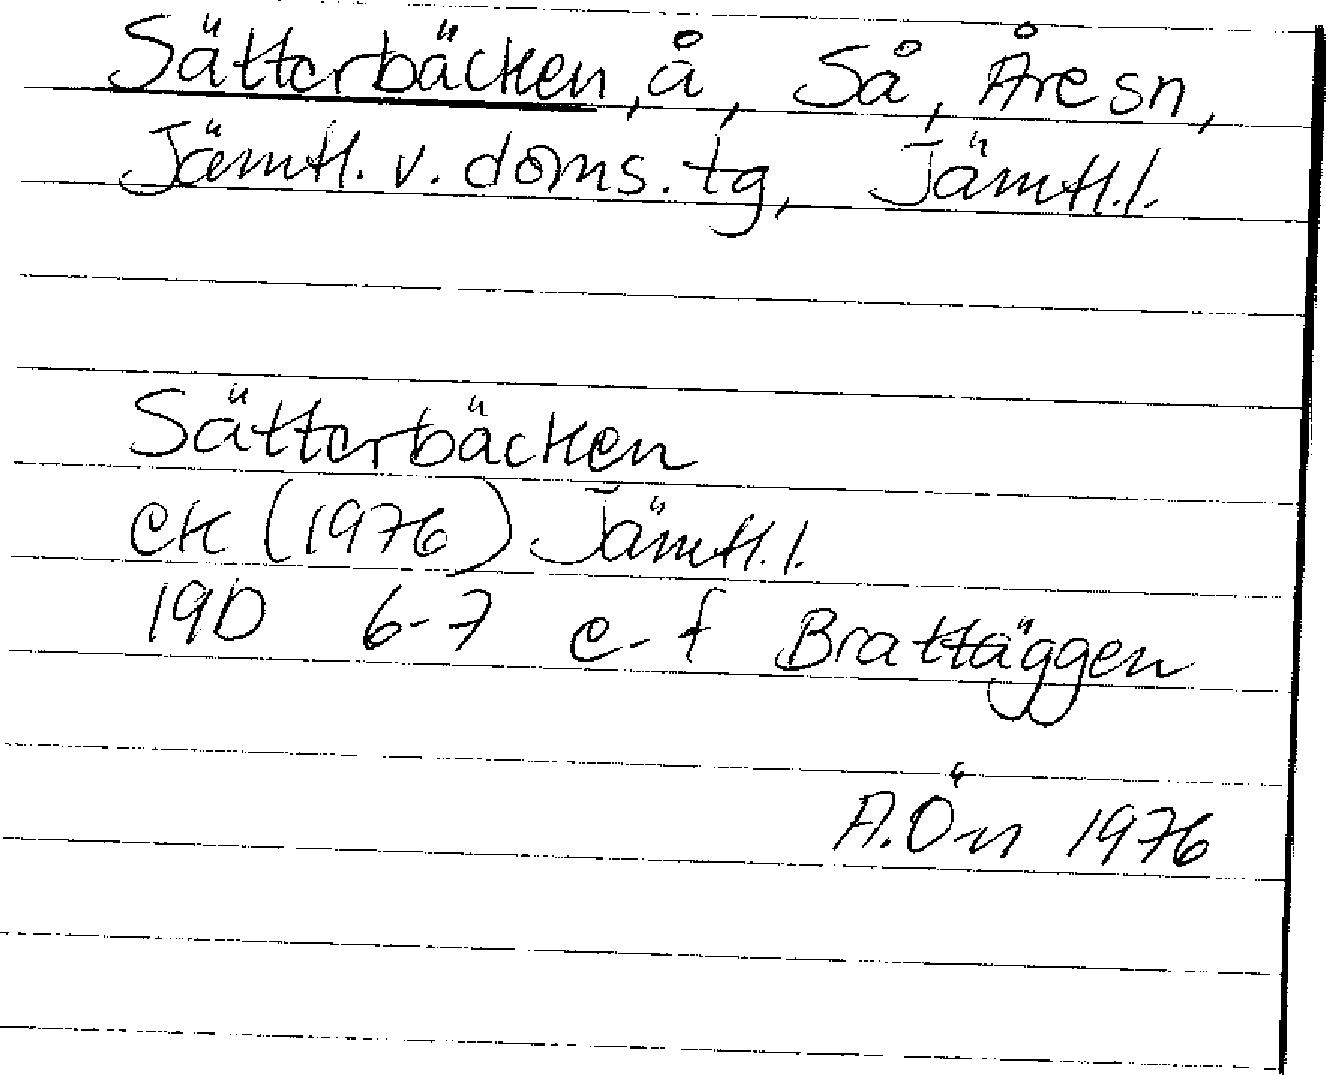 Sätterbäcken, å, Så, Åre sn,
Jämtl. v. doms. tg, Jämtl. l.
Sätterbäcken
ek (1976) Jämtl. l.
19D 6-7 e-f Brattäggen
A. Ön 1976